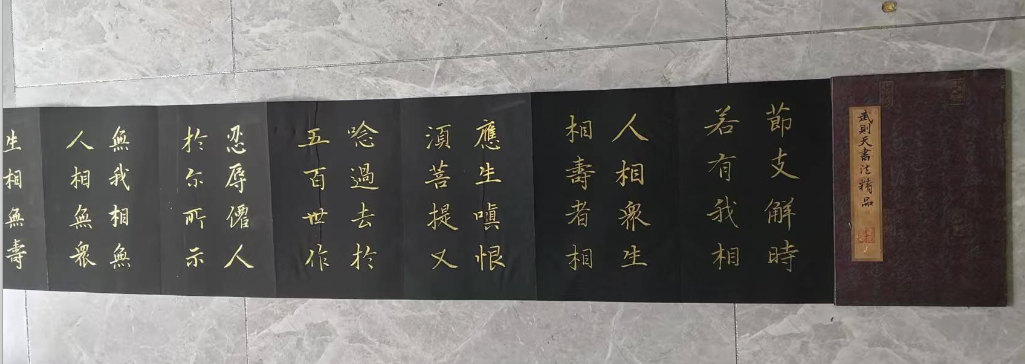 武則天書法精品
節支解時
若有我相
人相衆生
相壽者相
應生嗔恨
須菩提又
念過去於
五百世作
忍辱僊人
於尒所示
無我相無
人相無衆
生相無壽